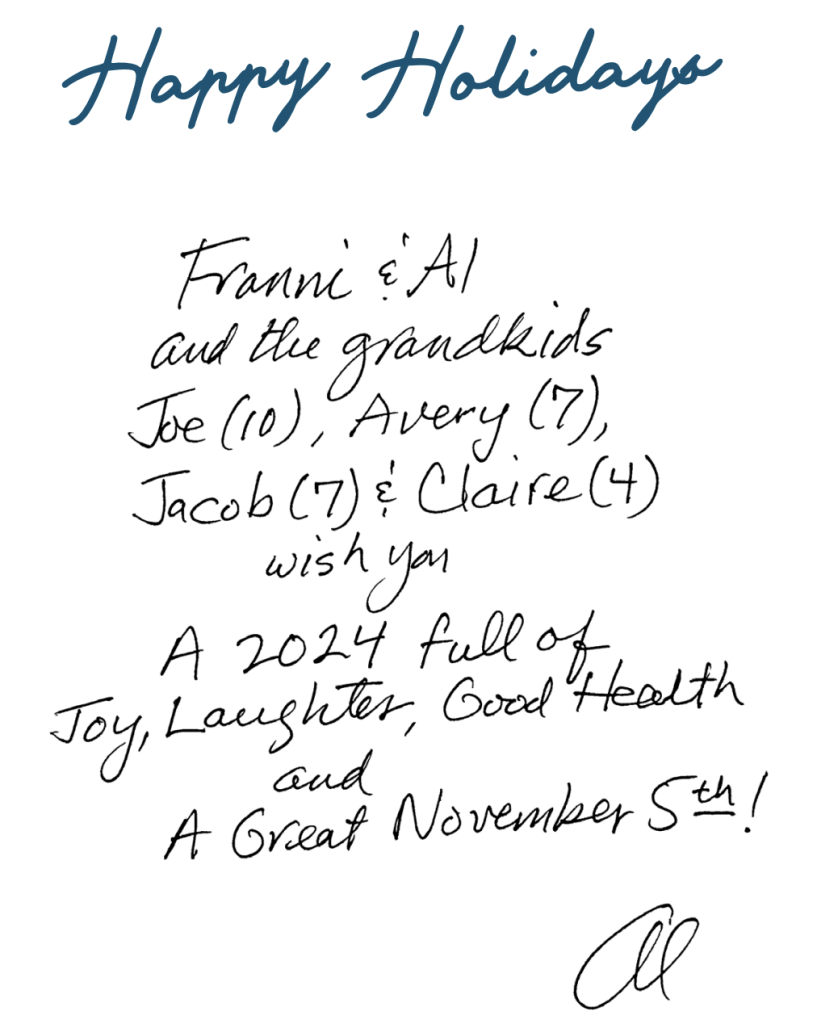 Happy Holidays
Franni & Al
and the grandkids
Joe (10), Avery (7),
Jacob (7) & Claire (4)
wish you
A 2024 full of
Joy, Laughter, Good Health
and
A Great November 5th!
Al